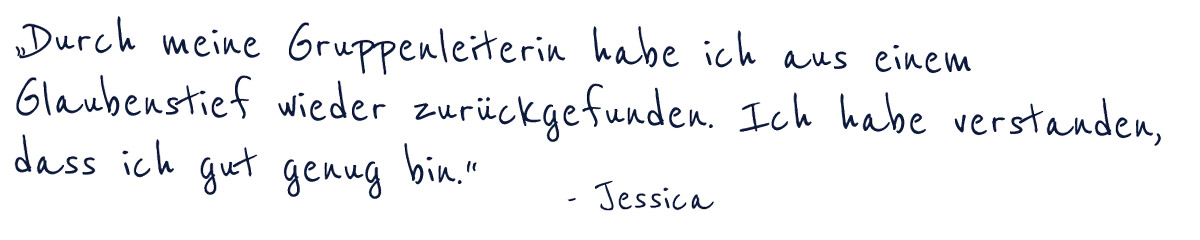 „Durch meine Gruppenleiterin habe ich aus einem
Glaubenstief wieder zurückgefunden. Ich habe verstanden,
dass ich gut genug bin.“
- Jessica